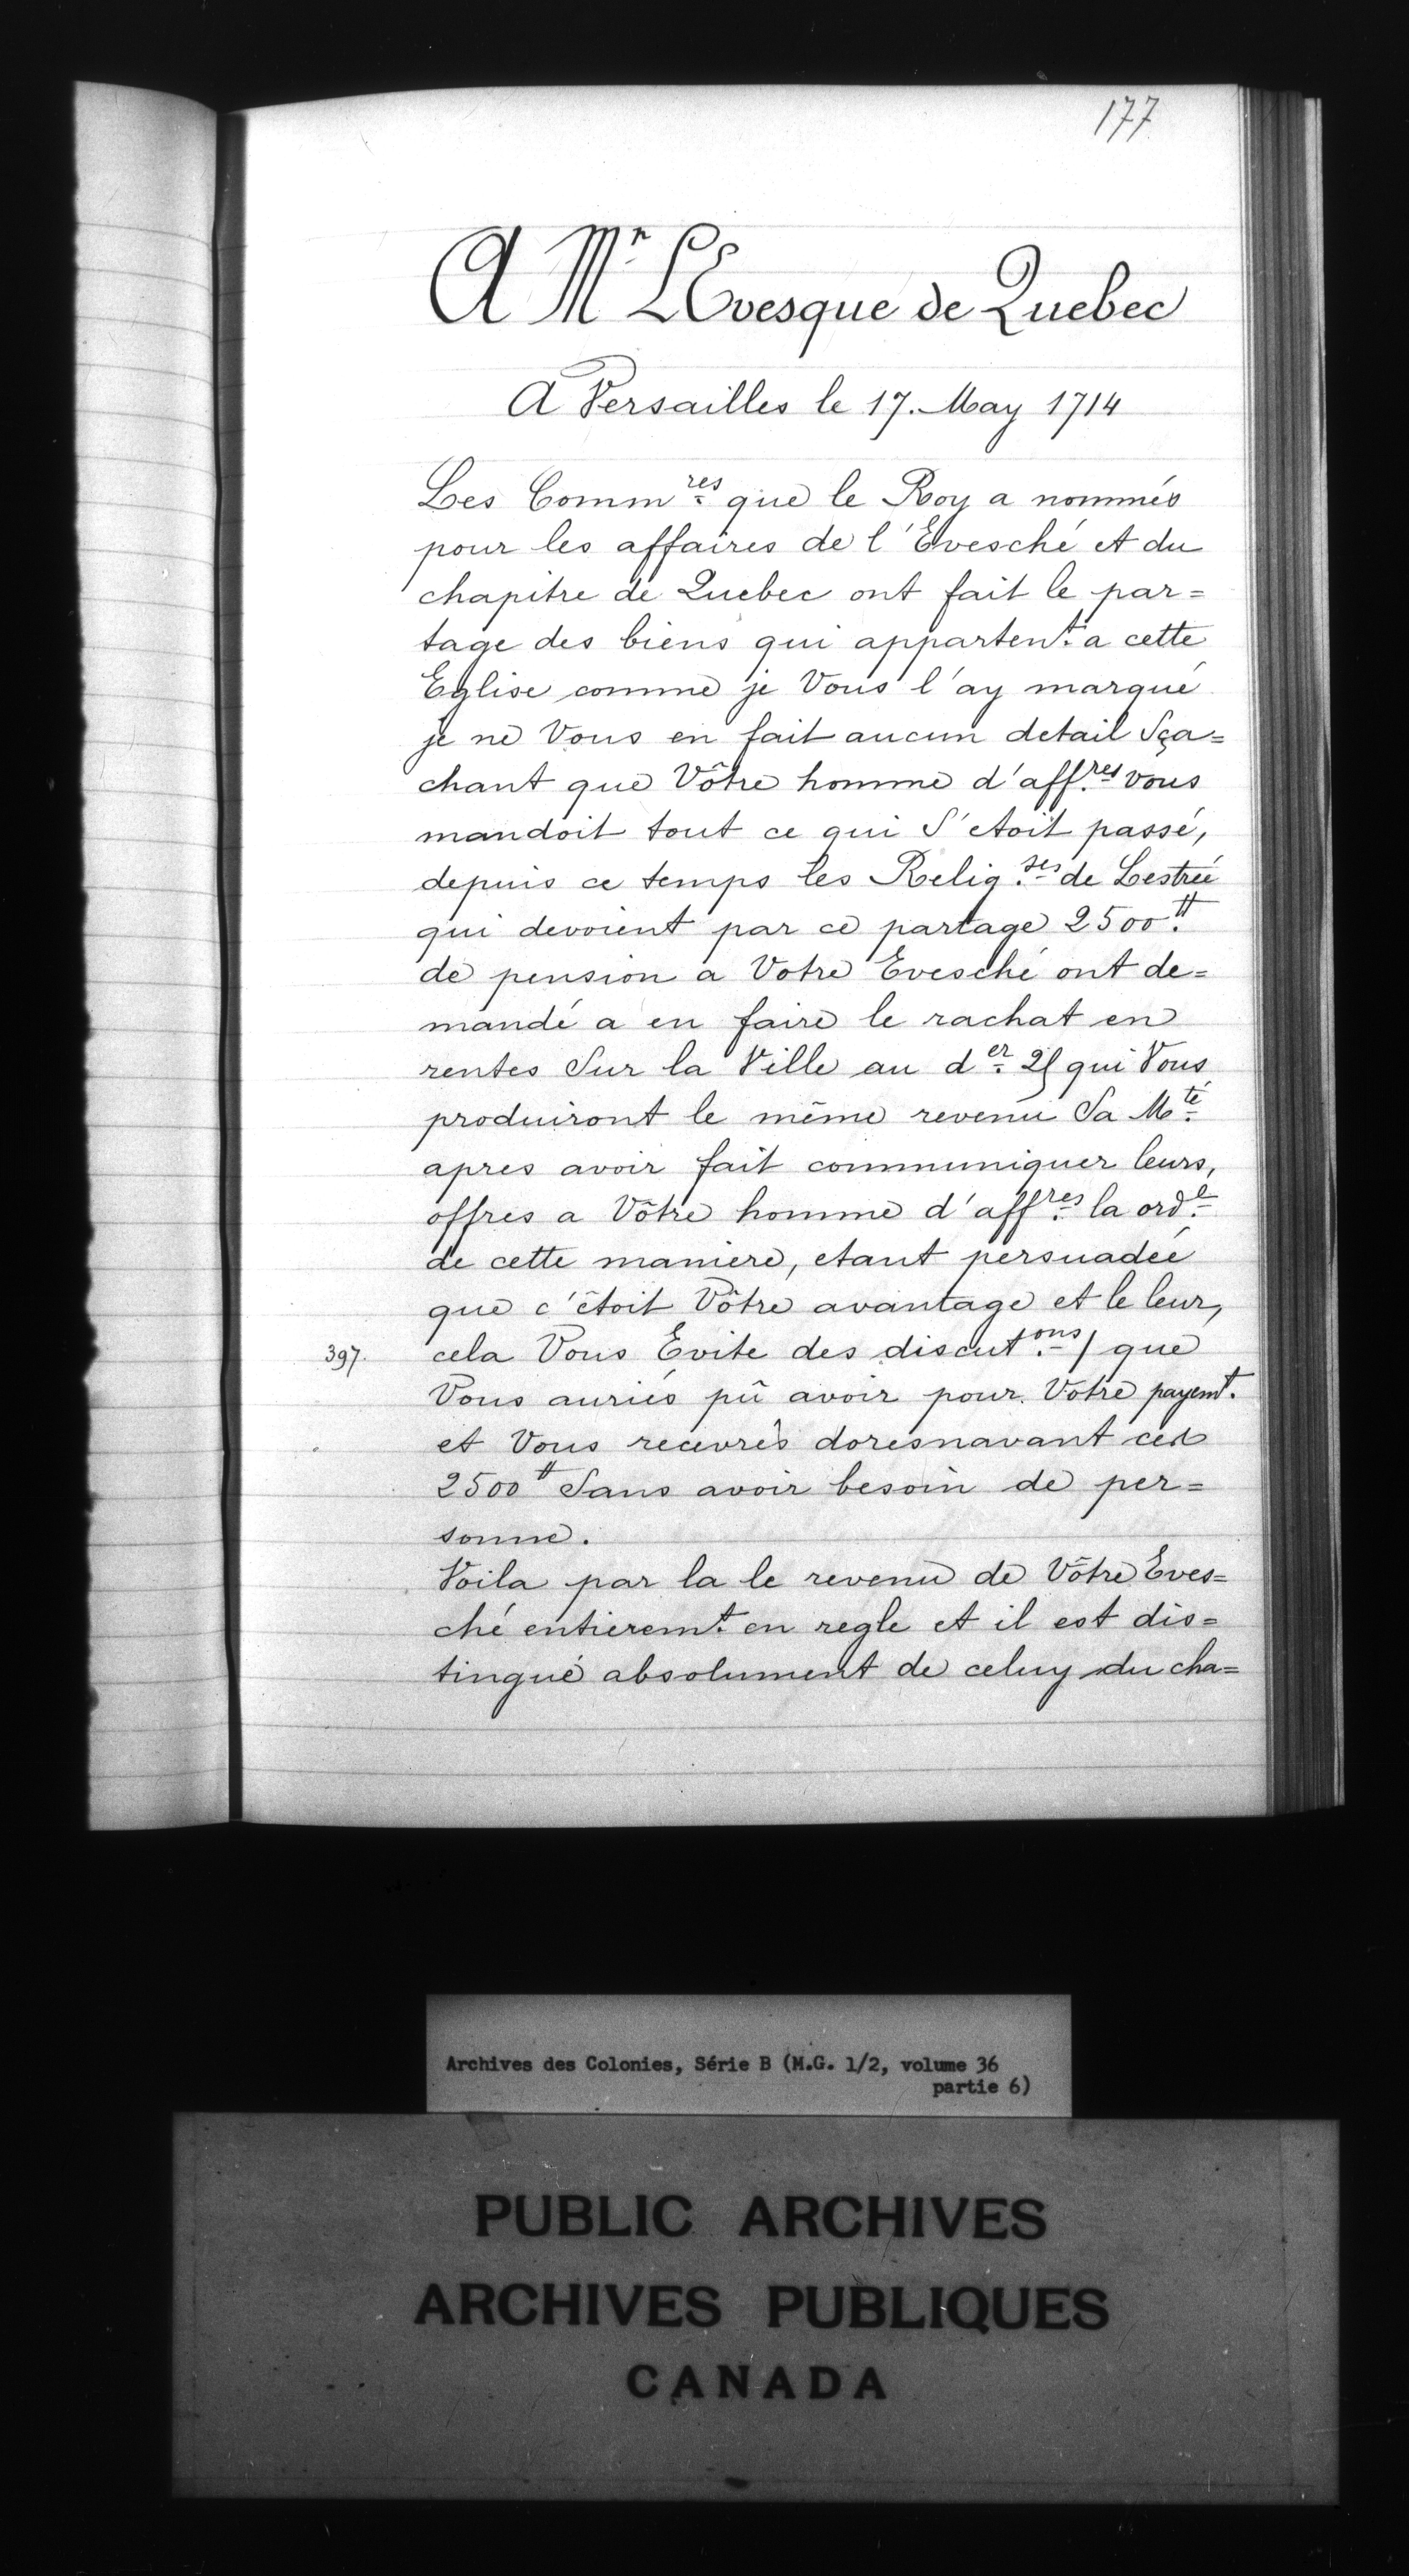 177
A Mr L'Evesque de Quebec
A Versailles le 17. May 1714
Les Commres que le Roy a nommés
pour les affaires de l'Evesché et du
chapitre de Quebec ont fait le par=
tage des biens qui appartent. a cette
Eglise comme je Vous l'ay marqué
je ne Vous en fait aucun detail Sça=
chant que Vôtre homme d'aff.res vous
mandoit tout ce qui S'etoit passé,
depuis ce temps les Relig.ses de Lestrée
qui devoient par ce partage 2500tt.
de pension a Votre Evesché ont de=
mandé a en faire le rachat en
rentes Sur la Ville au der. 25 qui Vous
produiront le même revenu Sa Mté.
apres avoir fait communiquer leurs,
offres a Vôtre homme d'aff.res la ord.é
de cette maniere, etant persuadée
que c'étoit Vôtre avantage et le leur,
397. cela Vous Evite des discut.ons / que
Vous auriés pû avoir pour Votre payemt.
et Vous recevrès doresnavant ces
2500tt Sans avoir besoin de per=
sonne.
Voila par la le revenu de Vôtre Eves=
ché entieremt. en regle et il est dis=
tingué absolument de celuy du cha=
Archives des Colonies, Série B (M.G. 1/2, volume 36
partie 6)
PUBLIC ARCHIVES
ARCHIVES PUBLIQUES
CANADA